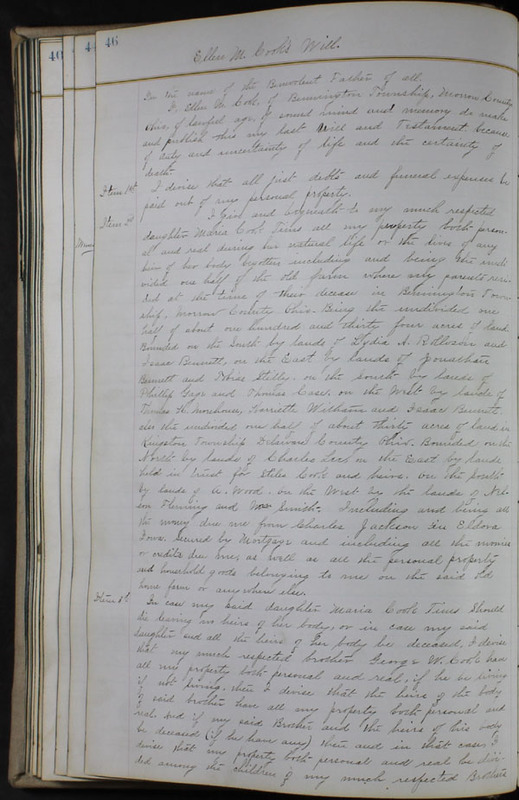 40
44
46
Ellen M. Cook's Will.
In the name of the Benevolent Father of all.
I, Ellen M. Cook, of Bennington Township, Morrow County
Ohio, of lawful age, of sound mind and memory do make
and publish this my last Will and Testament because
of duty and uncertainty of life and the certainty of
death.
Item 1st I devise that all just debts and funeral expenses be
paid out of my personal property.
Item 2d I Give and bequeath to my much respected
daughter Maria Cook Tims all my property both person-
al and real during her natural life or the lives of any
heirs of her body begotten including and being the undi-
vided one half of the old farm where my parents resi-
ded at the time of their decease in Bennington Town-
ship, Morrow County Ohio. Being the undivided one
half of about one hundred and thirty four acres of land
Bounded on the South by lands of Lydia A. and
Isaac Bennett, on the East by lands of Jonathan
Bennett and Stilly, on the south by lands of
Phillip Gage and Thomas Case, on the West by lands of
Thomas H. , Harriette and Isaac Bennett
also the undivided one half of about thirty acres of land in
Kingston Township Delaware County Ohio. Bounded on the
North by lands of Charles on the East by lands
held in trust for Stiles Cook and heirs. on the South
by lands of A. Wood. on the West by the lands of Nel-
son and Smith. Including and being all
the money due me from Charles Jackson in Eldora
Iowa. Secured by Mortgage and including all the monies
or credits due me, as well as all the personal property
and household goods belonging to me on the said old
home farm or anywhere else.
Item 3d In case my said daughter Maria Cook Tims should
die leaving no heirs of her body, or in case my said
daughter and all the heirs of her body be deceased, I devise
that my much respected brother George W. Cook have
all my property both personal and real, if he be living
if not living, then I devise that the heirs of the body
of said brother have all my property both personal and
real. but if my said Brother and the heirs of his body
be deceased (if he have any) then and in that case, I
devise that my property both personal and real be divi-
ded among the children of my much respected Brothers